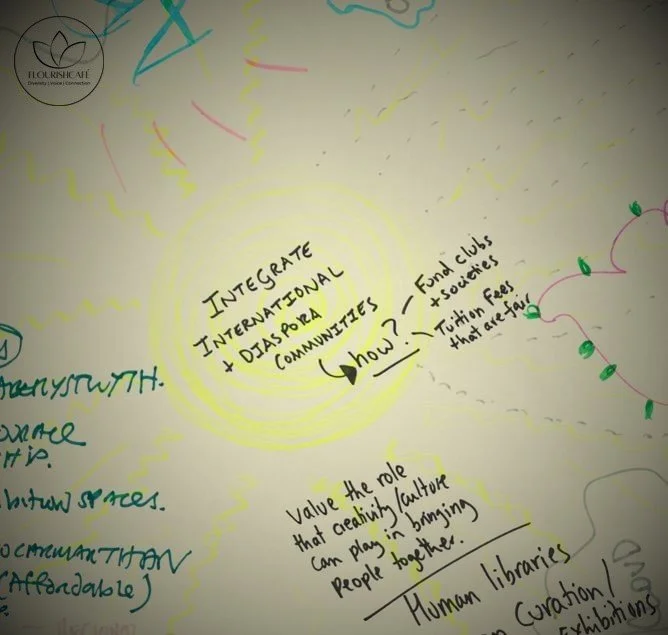 FLOURISHCAFÉ
Diversity | Voice | Connection
INTEGRATE
INTERNATIONAL
+ DIASPORA
COMMUNITIES
how?
Fund clubs
+ societies
Tuition Fees
that are fair
ABERYSTWYTH.
SPACES.
(Affordable)
Value the role
that creativity/culture
can play in bringing
people together.
Human libraries
Curation/
Exhibitions